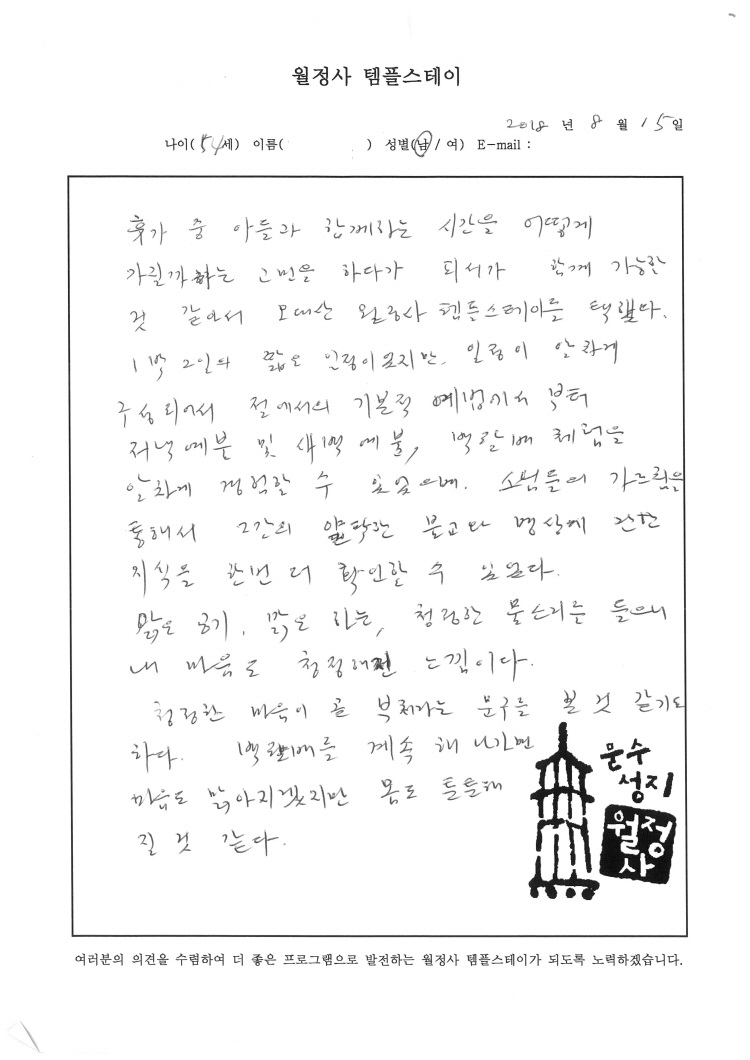 월정사 템플스테이
2018 년 8 월 15일
나이(54세) 이름( ) 성별(남/여) E-mail :
휴가 중 아들과 함께하는 시간을 어떻게
가질까 하는 고민을 하다가 피서가 함께 가능한
것 같아서 오대산 월정사 템플스테이를 택했다.
1박 2일의 짧은 일정이었지만, 일정이 알차게
구성되어서 절에서의 기본적 예법에서 부터
저녁예불 및 새벽예불, 백팔배 체험을
알차게 경험할 수 있었으며, 스님들의 가르침을
통해서 그간의 얄팍한 불교와 명상에 관한
지식을 한번 더 확인할 수 있었다.
맑은 공기, 맑은 하늘, 청정한 물소리를 들으니
내 마음도 청정해진 느낌이다.
청정한 마음이 곧 부처라는 문구를 본 것 같기도
하다. 백팔배를 계속 해 나가면
마음도 맑아지겠지만 몸도 튼튼해
질 것 같다.
문수
성지
월정
사
여러분의 의견을 수렴하여 더 좋은 프로그램으로 발전하는 월정사 템플스테이가 되도록 노력하겠습니다.